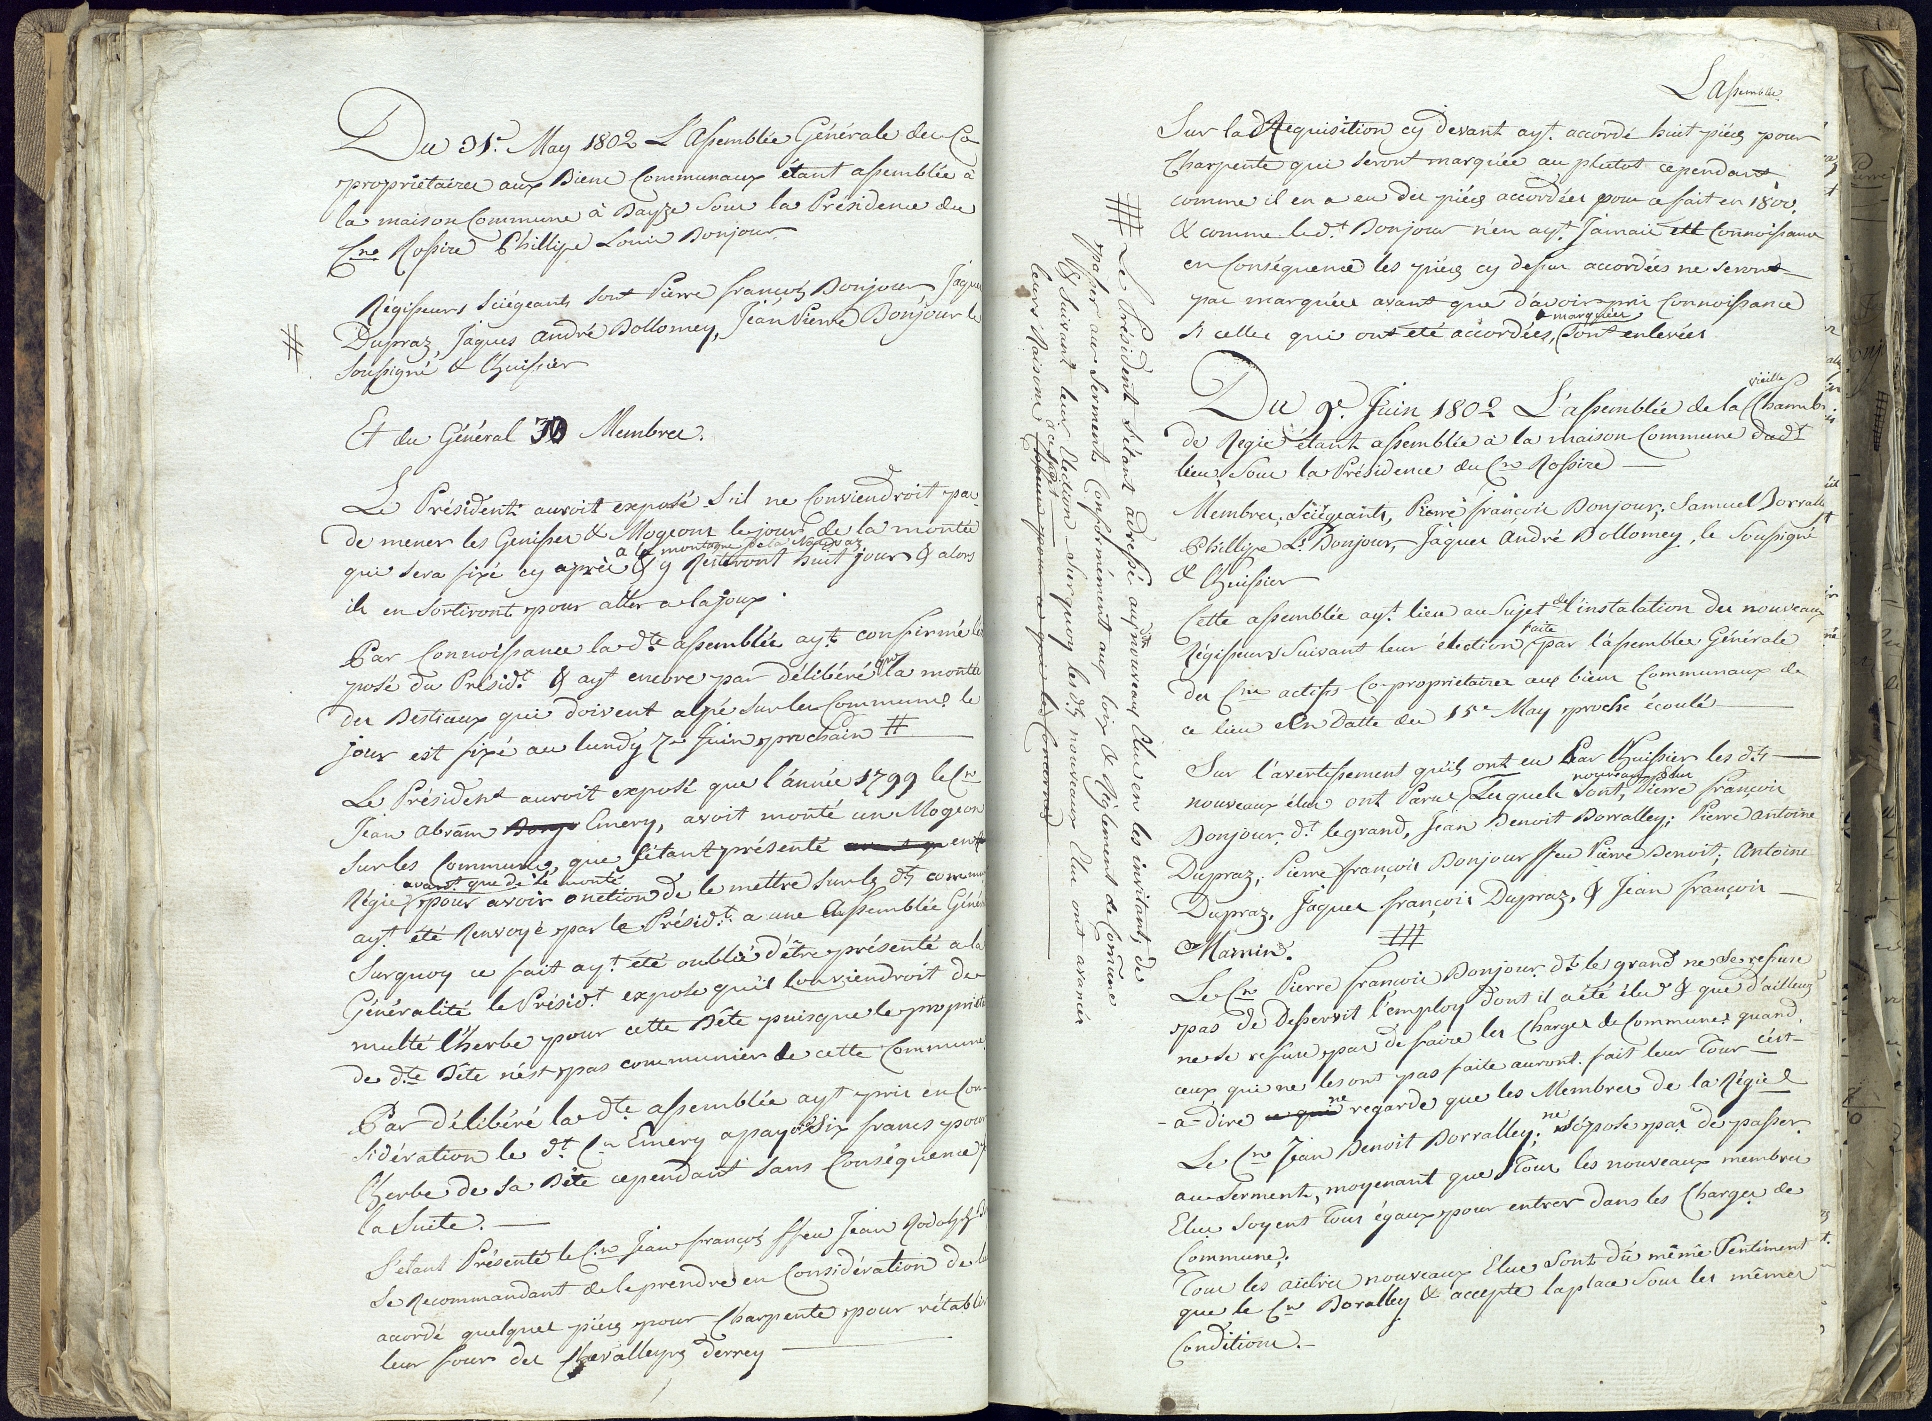 Du 31e. May 1802 L'Assemblée Générale des Co-
propriétaires aux Biens Communaux étant assemblée à
la maison Commune à Bayze Sous la Présidence du
Cne Rossire Phillipe Louis Bonjour
Régisseurs Sciégeants sont Pierre françois Bonjour Jaques
Dupraz, Jaques André Dollomey, Jean Pierre Bonjour le
Soussigné & l'huissier
#
Et du Général 30 Membres.
Le Président auroit exposé s'il ne Conviendroit pas
de mener les Genisses & Mogeons le jour de la montée
a la montagne de la
qui sera fixé cy après & y Resteront huit jours & alors
ils en Sortiront pour aller a la joux.
Par Connoissance la dte assemblée ayt confirmé l'ex
posé du Présidt. & ayt encore par délibéré que la montée
des Bestiaux qui doivent alpé sur les Communs le
jour est fixé au lundy 7e Juin prochain #
Le Président auroit exposé que l'année 1799 le Cn
Jean Abram Emery, avoit monté un Mogeon
Sur les Communs, que s'étant présenté en
avant que de lé monté
Régie pour avoir onction de le mettre sur les dts communs
ayt. été Renvoyé par le Présidt. a une Assemblée Génér
Surquoy ce fait ayt. été oublié d'être présenté a la
Généralité le Présidt. expose qu'il Conviendroit de
multé l'herbe pour cette Bête puisque le propriét
de dte Bête n'est pas communier de cette Commune
Par délibéré la dte. assemblée ayt pris en Con-
sidération le dt. Cn Emery a payer Six francs pour
l'herbe de sa Bête cependant sans Conséquence p
la Suite.
S'étant Présenté le Cne Jean françois ffeu Jean Rodolph
Se Recommandant de le prendre en Considération de l
accordé quelques pièces pour Charpente pour rétablir
leur four des Chevalleyres derrey
L'assemblée
Sur la Requisition cy devant ayt. accordé huit pièces pour
Charpente qui seront marquée au plutot cependant
comme il en a eu des pièces accordées pour ce fait en 1800.
& comme le dt. Bonjour n'en ayt. Jamais Connoissance
en Conséquence les pièces cy dessus accordées ne seront
pas marquées avant que d'avoir pris Connoissance
marquées
si celles qui ont été accordées, Sont enlevées
vieille
Du 9e. Juin 1802 L'assemblée de la Chambre
de Regie étant assemblée à la maison Commune dudt
lieu, Sous la Présidence du Cne Rossire
Membres, Sciègeants, Pierre françois Bonjour; Samuel Borralley
Phillipe Ls. Bonjour, Jaques André Dollomey, le Soussigné
& l'huissier
Cette assemblée ayt. lieu au Sujet de l'instalation des nouveaux
faite
Régisseurs Suivant leur élection par l'assemblée Générale
des Cns actifs Co-propriétaires aux biens Communaux de
ce lieu En Datte du 15e May proche écoulé
Sur l'avertissement qu'ils ont eu Par l'huissier les dts
nouveaux Elus
nouveaux élus ont Parus, Lesquels Sont, Pierre françois
Bonjour dt. le grand, Jean Benoit Borralley; Pierre Antoine
Dupraz; Pierre françois Bonjour ffeu Pierre Benoit; Antoine
Dupraz, Jaques françois Dupraz, & Jean françois
Marmin.
Le Cn Pierre françois Bonjour dt. le grand ne se refuse
pas de desservit l'employ dont il a été élus & que d'ailleurs
ne se refuse pas de faire les Charges de Communes quand
ceux qui ne les ont pas faite auront fait leur Tour c'est-
-a-dire ne regarde que les Membres de la Régie
Le Cne Jean Benoit Borralley; ne s'opose pas de passer
au Serment, moyenant que Tous les nouveaux membres
Elus Soyent tous égaux pour entrer dans les Charges de
Commune;
Tous les autres nouveaux Elus sont du même Sentiment
que le Cn Boralley & accepte la place Sous les mêmes
Conditions.
Le Président s'étant adressé aux dts nouveaux Elus en les invitant, de
passer aux Serments Conformément aux loix & Réglement de Comune
& Suivant leur Election Surquoy les dts nouveaux Elus ont avancés
leurs Raisons a ce sujet